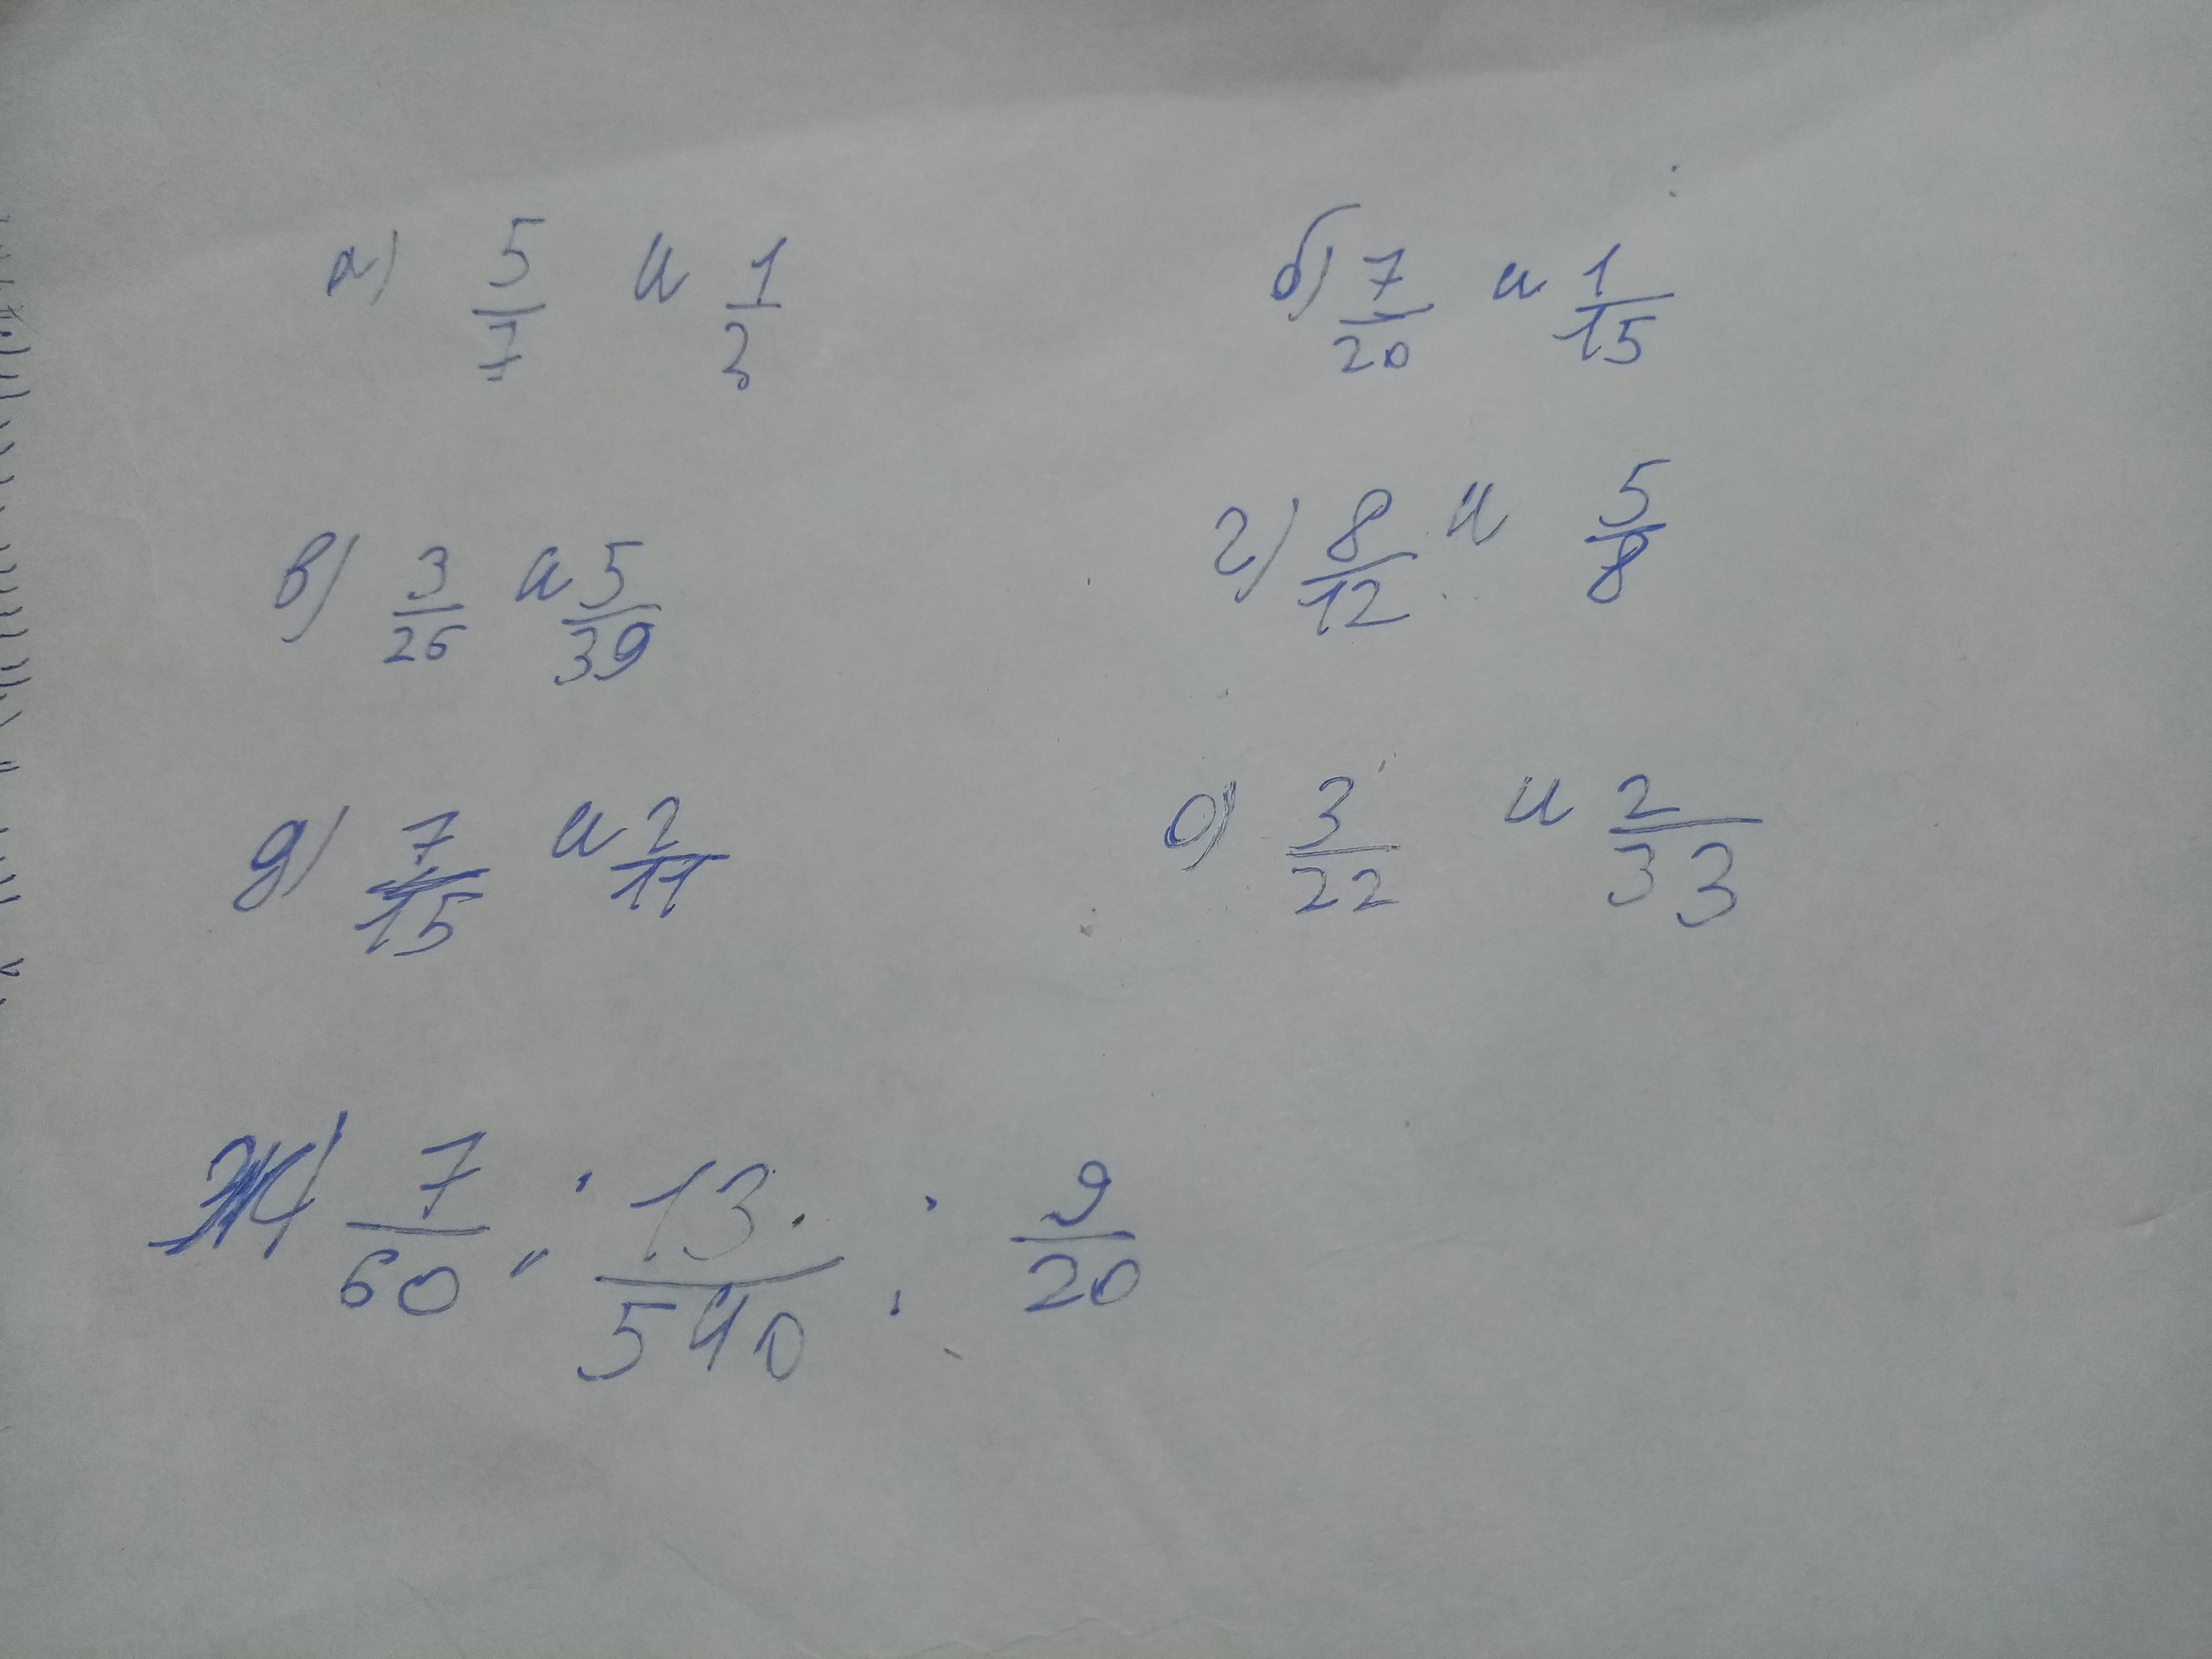 а) 5/7 и 1/3 б) 7/20 и 1/15
в) 3/26 и 5/39 г) 8/12 и 5/8
д) 7/15 и 2/11 е) 3/22 и 2/33
ж) 7/60 ; 13/540 ; 9/20